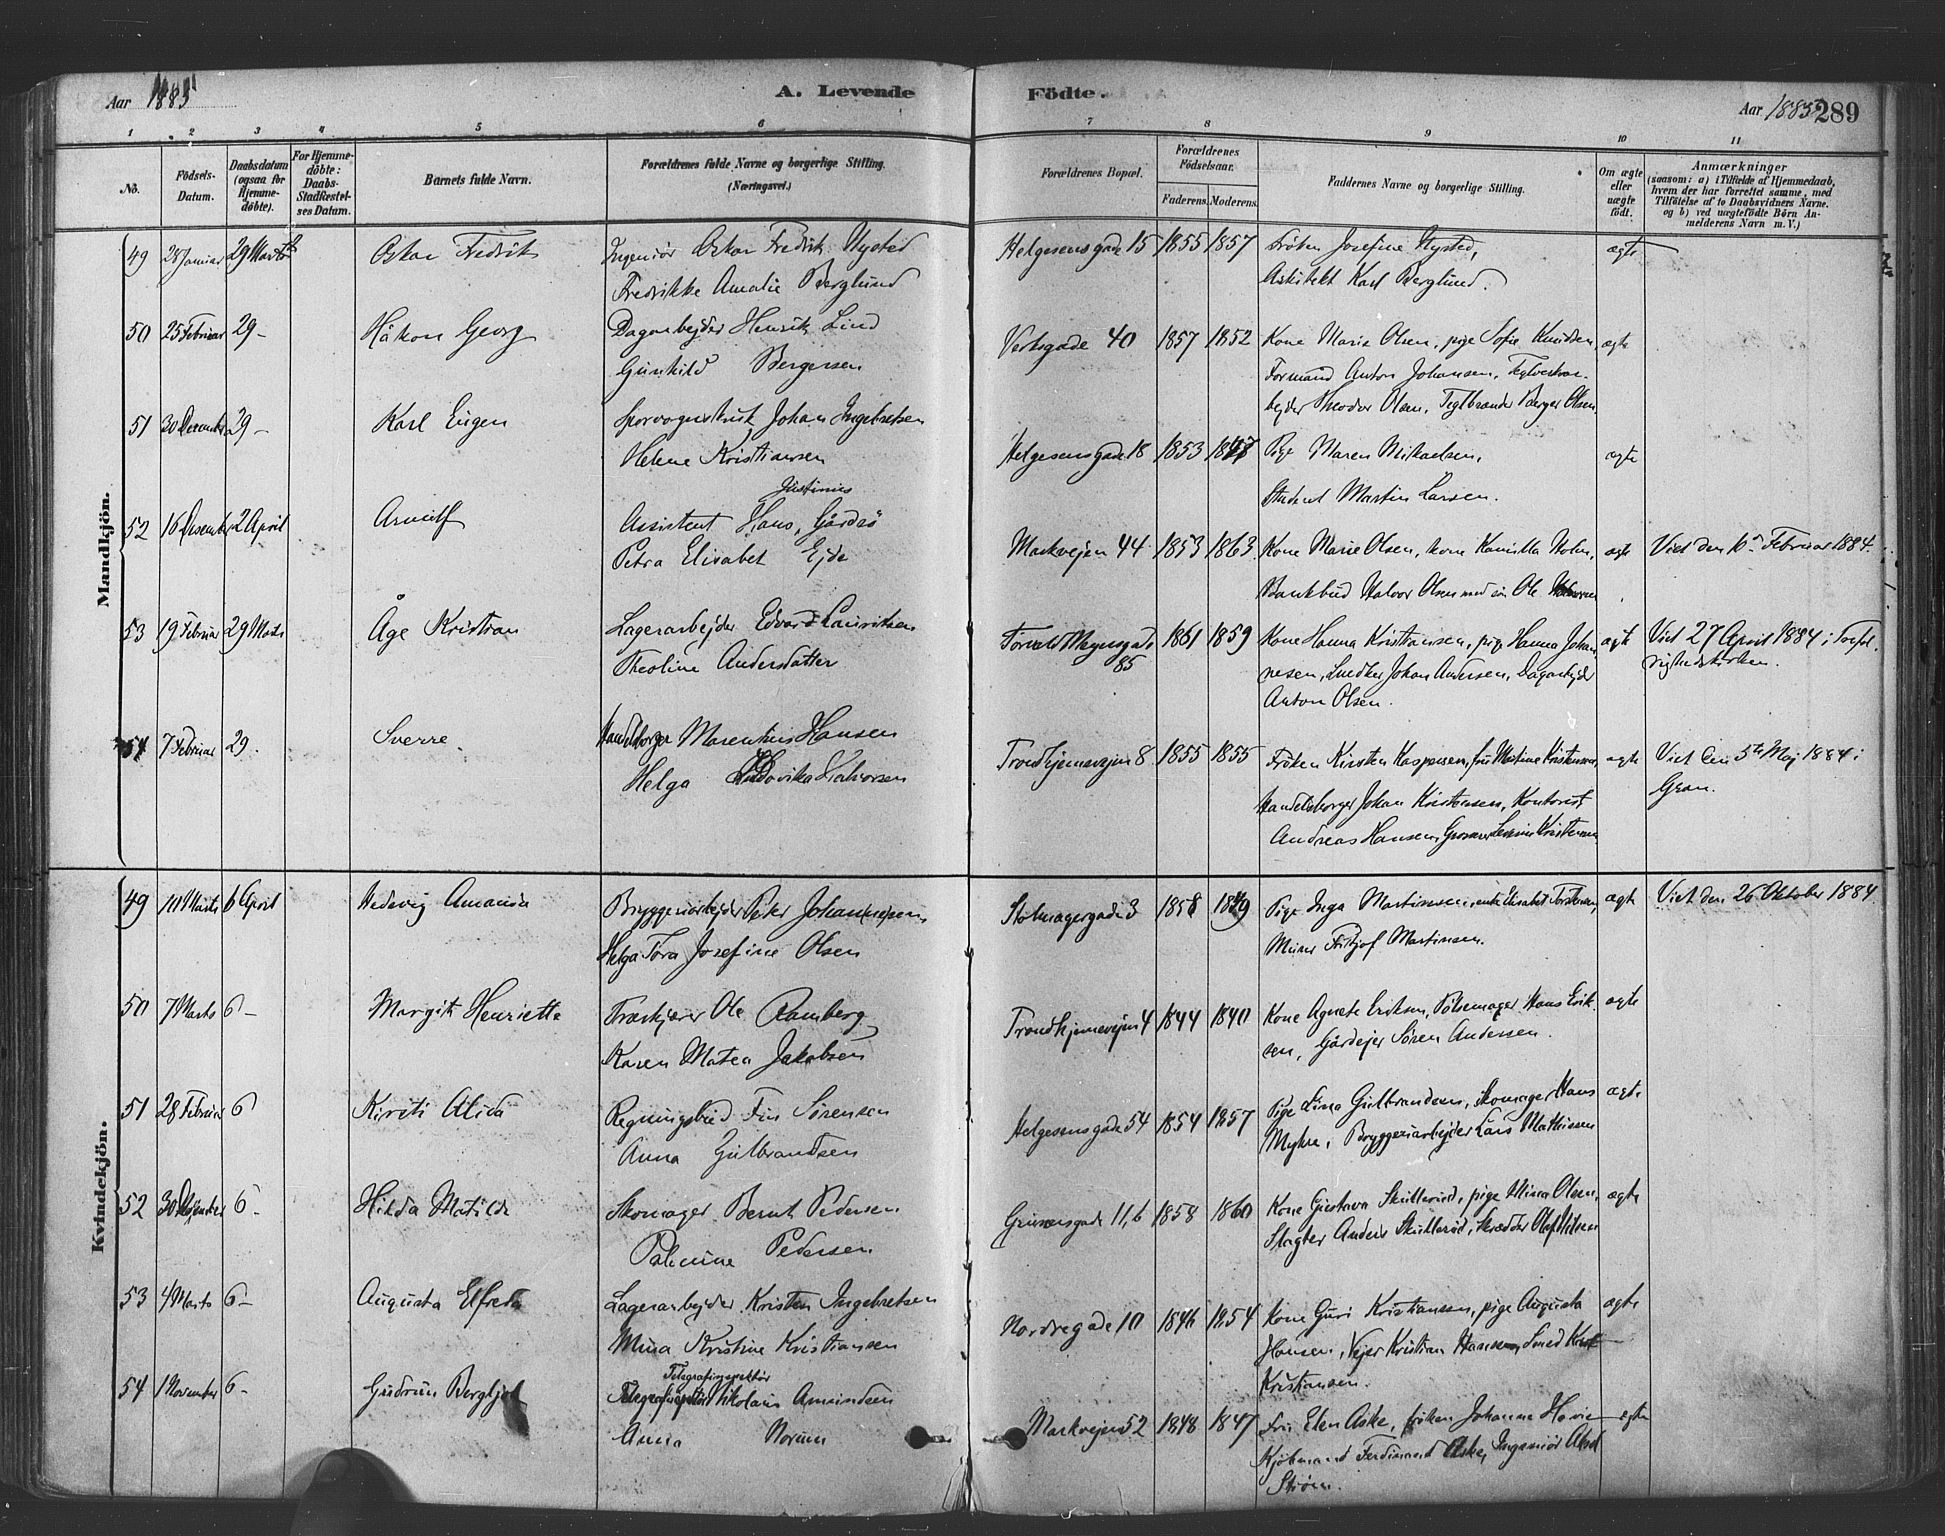 Aar 1885
A. Levende
Födte.
Aar 1885
289
1 2 3 4 5 6 7 8 9 10 11
No.
Födsels-Datum.
Daabsdatum (ogsaa for Hjemme-döbte).
For Hjemme-döbte: Daabs-Stadfæstel-ses Datum.
Barnets fulde Navn.
Forældrenes fulde Navne og borgerlige Stilling. (Næringsvei.)
Forældrenes Bopæl.
Forældrenes Födselsaar.
Faderens. Moderens.
Faddernes Navne og borgerlige Stilling.
Om ægte eller uægte født.
Anmærkninger
(saasom: a) i Tilfælde af Hjemmedaab, hvem der har forrettet samme, med Tilföielse af to Daabsvidners Navne. og b) ved uægtefödte Börn An-melderens Navn m.V.)
Mandkjön.
49 28 Januar 29 Marts Oskar Fredrik Ingeniör Oskar Fredrik Nysted Helgesensgade 15 1855 1857 Fröken Josefine Nysted, ægte
Fredrikke Amalie Berglund Arkitekt Karl Berglund.
50 25 Februar 29 - Håkon Georg Dagarbejder Henrik Lind Verksgade 40 1857 1852 Kone Marie Olsen, pige Sofie Knudsen, ægte
Gunhild Bergersen Formand Anton Johansen, Teglverksar-
bejder Theodor Olsen, Teglbrænder Berger Olsen
51 30 December 29 - Karl Eugen Sporvognskusk Johan Ingebretsen Helgesensgade 18 1853 Pige Maren Mikaelsen, ægte
Helene Kristiansen Student Martin Larsen.
52 16 Desember 2 April Arnulf Assistent Hans Justinius Gårdsö Markvejen 44 1853 1863 Kone Marie Olsen, kone Kamilla Holm, ægte Viet den Februar 1884.
Petra Elisabet Ejde Bankbud Halvor Olsen med sön Ole
53 19 Februar 29 Marts Åge Kristian Lagerarbejder Edvard Lauritsen Torvald Meyersgade 85 1861 1859 Kone Hanna Kristiansen, pige Hanna Johan- ægte Viet 27 April 1884 i Trefol.
Theoline Andersdatter nesen, Snedker Johan Andersen, Dagarbejder righedskirken.
Anton Olsen.
54 7 Februar 29. Sverre. Handelsborger Marentius Hansen Trondhjemsvejen 8 1855 1855 Fröken Kirsten Kaspersen, fru Martine Kristensen, ægte Viet den 5te Maj 1884 i
Helga Ludovika Halvorsen Handelsborger Johan Kristensen, Kontorist Gran.
Andreas Hansen, Grosserer Kristensen
Kvindekjön.
49 10 Marts 6 April Hedevig Amanda Bryggeriarbejder Peter Johannesen Stolmagergade 3 1858 1859 Pige Inga Martinsen, enke Elisabet Torstensen, ægte Viet den 26 Oktober 1884
Helga Tora Josefine Olsen Murer Fritjof Martinsen.
50 7 Marts 6 - Margit Henriette Træskjærer Ole Ramberg Trondhjemsvejen 4 1844 1840 Kone Agnete Eriksen, Pölsemager Hans Erik- ægte
Karen Matea Jakobsen sen, Gårdejer Sören Andersen.
51 28 Februar 6 Kirsti Alida Regningsbud Fin Sörensen Helgesensgade 54 1854 1857 Pige Lina Gulbrandsen, Skomager Hans ægte
Anna Gulbrandsen Myhre, Bryggeriarbejder Lars Mathisen
52 30 6 - Hilda Matilde Skomager Bernt Pedersen Grünersgade 11,b 1858 1860 Kone Gustava Skullerud, pige Mina Olsen, ægte
Paluine Pedersen Slagter Anders Skullerud, Skrædder Olaf Nilsen
53 4 Marts 6 - Augusta Elfreda Lagerarbejder Kristen Ingebretsen Nordregade 10 1846 1854 Kone Guri Kristiansen, pige Augusta ægte
Mina Kristine Kristiansen Hansen, Vejer Kristian Hansen, Smed
Kristiansen.
54 1 November 6 - Gudrun Bergljot Telegrafinspektör Nikolaus Amundsen Markvejen 52 1848 1847 Fru Elen Aske, fröken Johanne Hovie ægte
Anna Norum Kjöbmand Ferdinand Aske, Ingeniör
Ström.